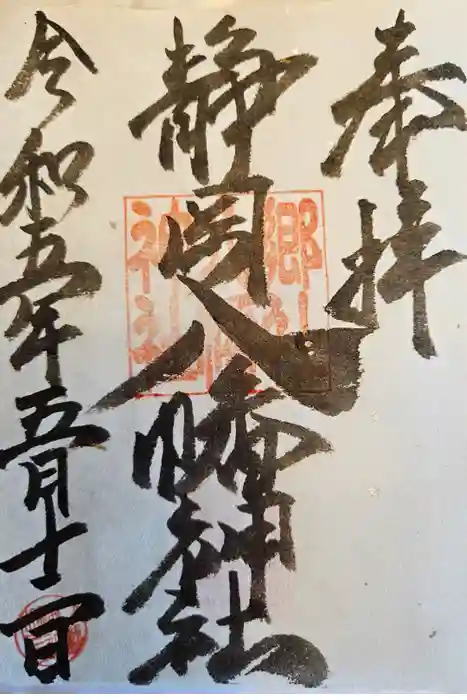 奉拝
静岡八幡神社
令和五年五月十一日
郷
神社